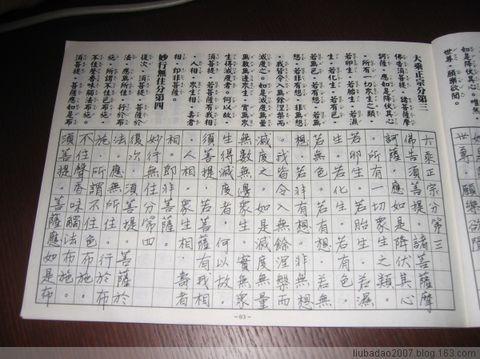 如是降伏其心。唯然
世尊。願樂欲聞。
大乘正宗分第三
佛告須菩提。諸菩薩摩
訶薩。應如是降伏其心
。所有一切眾生之類。
若卵生。若胎生。若濕
生。若化生。若有色。
若無色。若有想。若無
想。若非有想非無想
。我皆令入無餘涅槃而
滅度之。如是滅度無量
無數無邊眾生。實無眾
生得滅度者。何以故。
須菩提。若菩薩有我相
。人相。眾生相。壽者
相。即非菩薩。
妙行無住分第四
復次。須菩提。菩薩於
法。應無所住。行於布
施。所謂不住色布施。
不住聲香味觸法布施。
須菩提。菩薩應如是布
如是降
世尊。願
大乘正宗分第三
佛告須菩提。諸菩薩摩
訶薩。應如是降伏其心
。所有一切眾生之類。
若卵生。若胎生。若濕
生。若化生。若有色。
若無色。若有想。若無
想。若非有想非無想
。我皆令入無餘涅槃而
滅度之。如是滅度無量
無數無邊眾生。實無眾
生得滅度者。何以故。
須菩提。若菩薩有我相
。人相。眾生相。壽者
相。即非菩薩。
妙行無住分第四
復次。須菩提。菩薩於
法。應無所住。行於布
施。所謂不住色布施。
不住聲香味觸法布施。
須菩提。菩薩應如是布
-63-
liubadao2007.blog.163.com